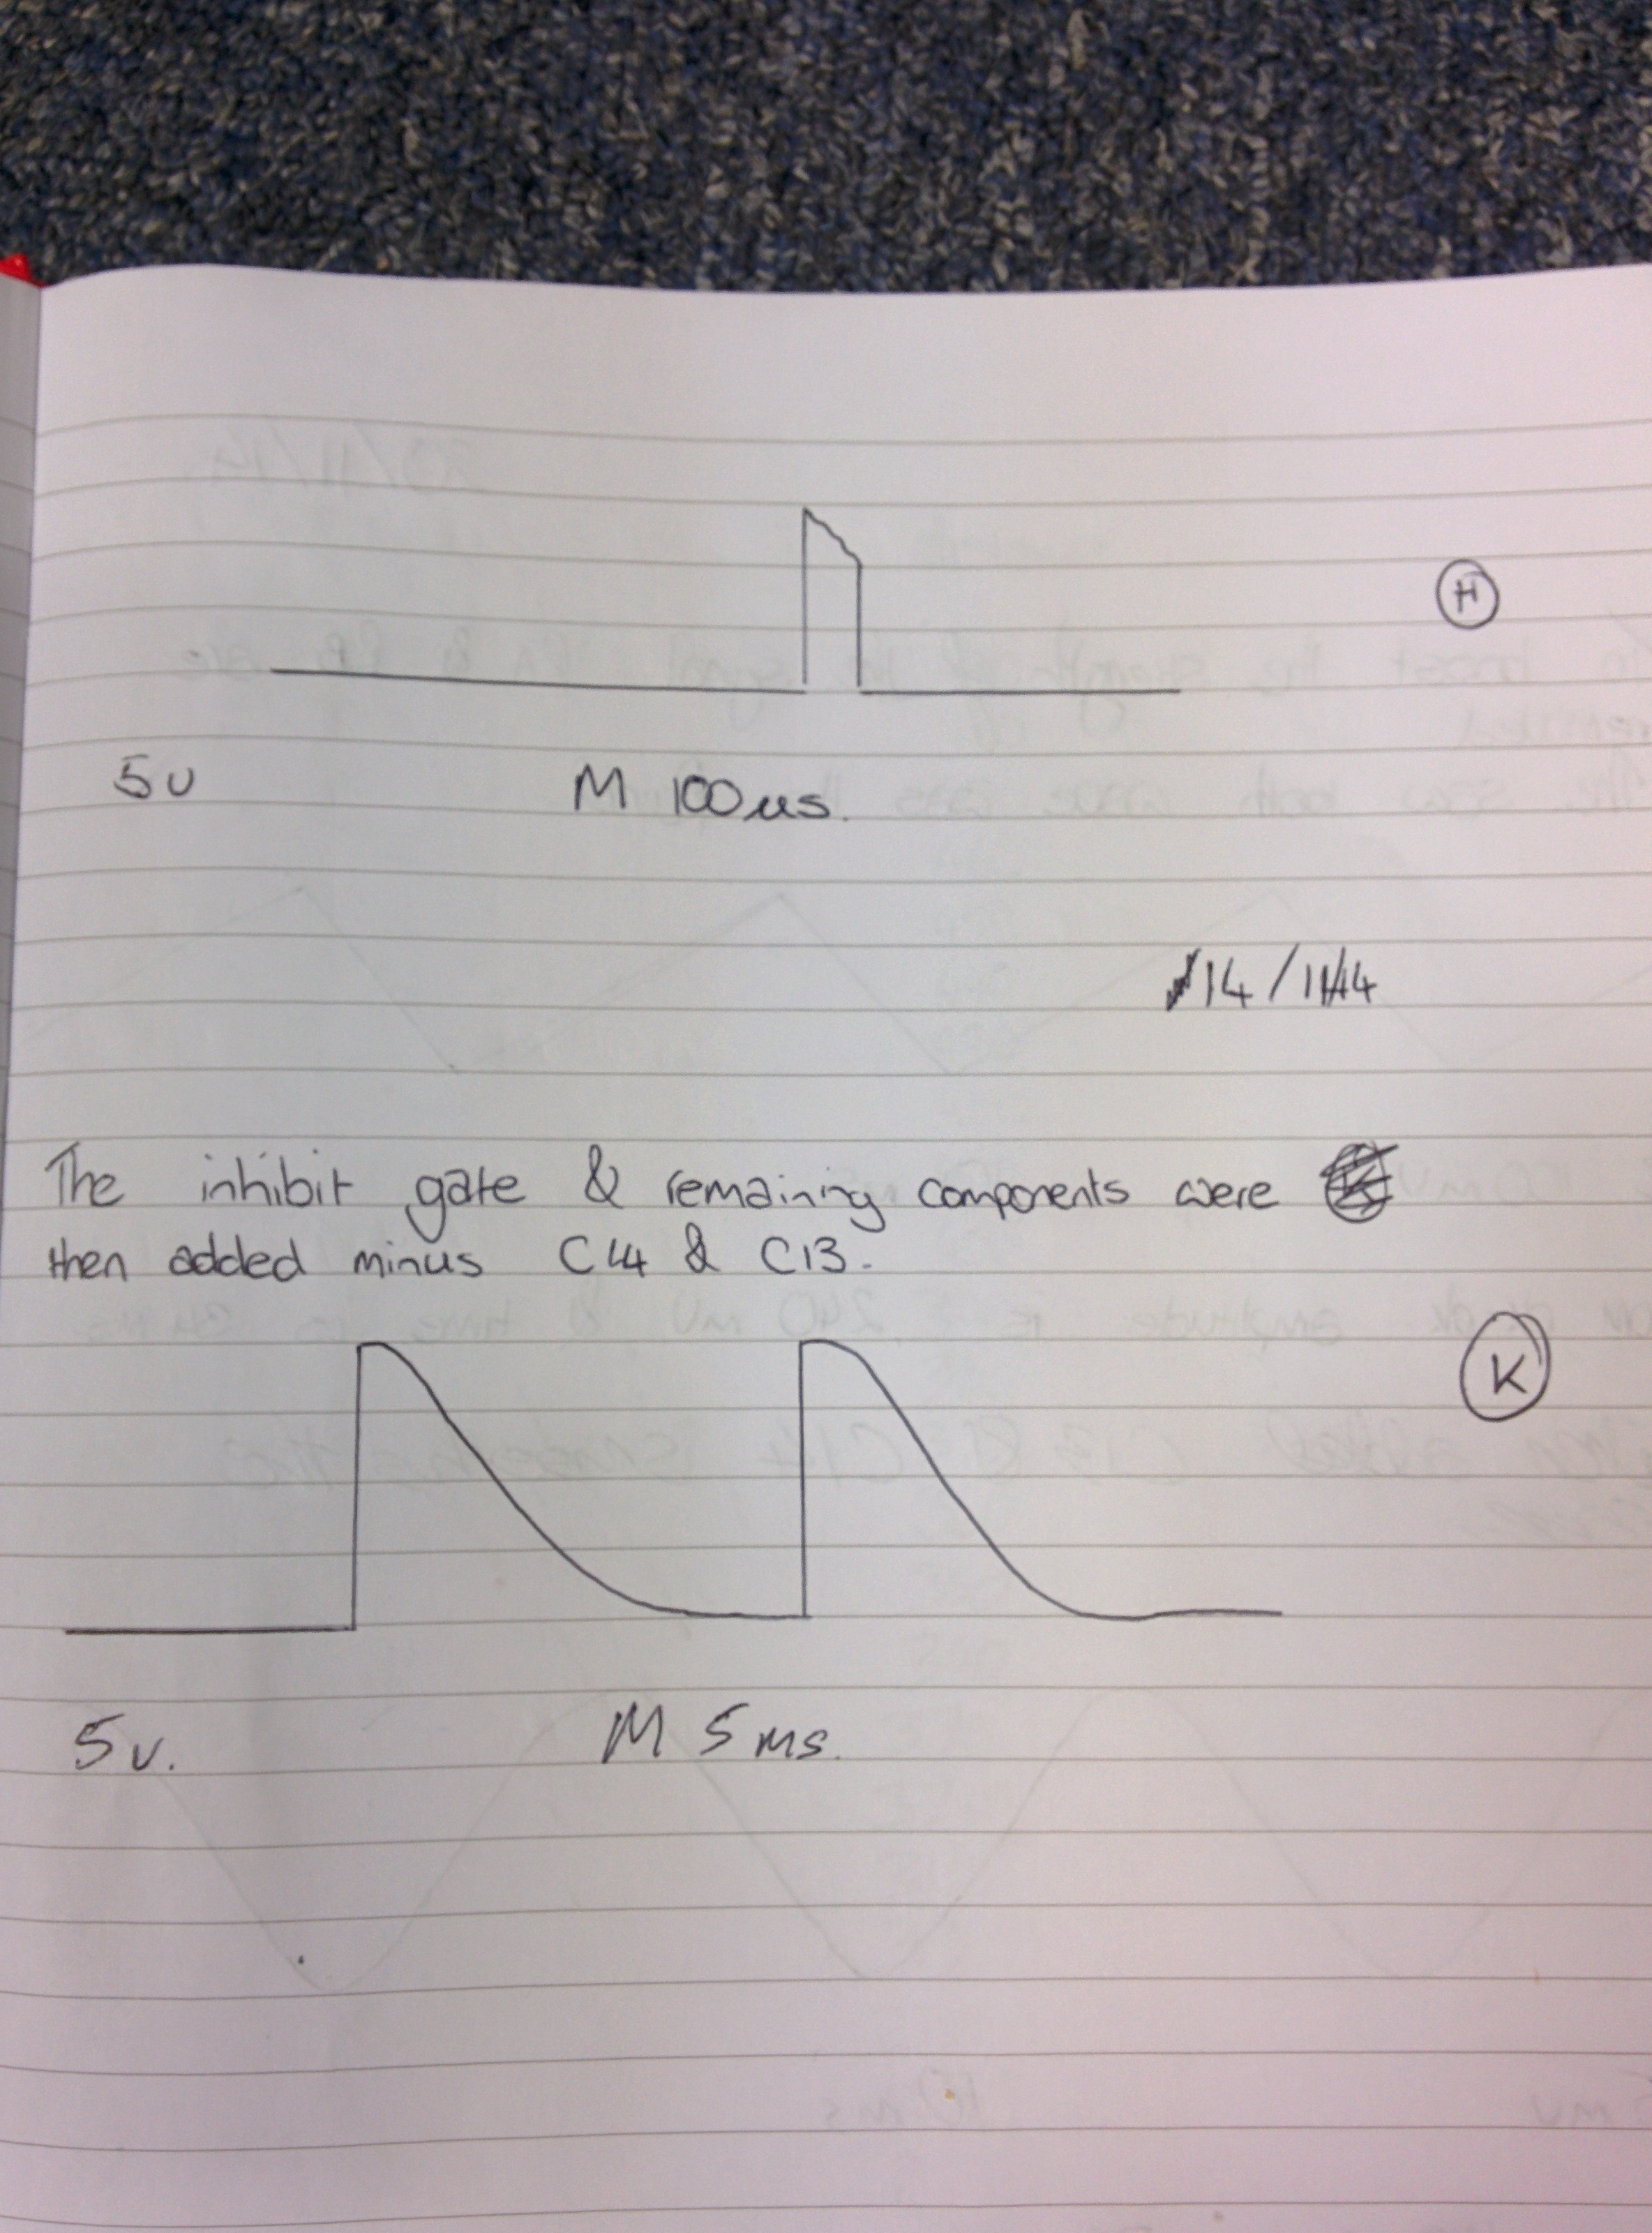 H
5v M 100us.
14/11/14
The inhibit gate & remaining components were
then added minus C14 & C13.
K
5v. M 5ms.